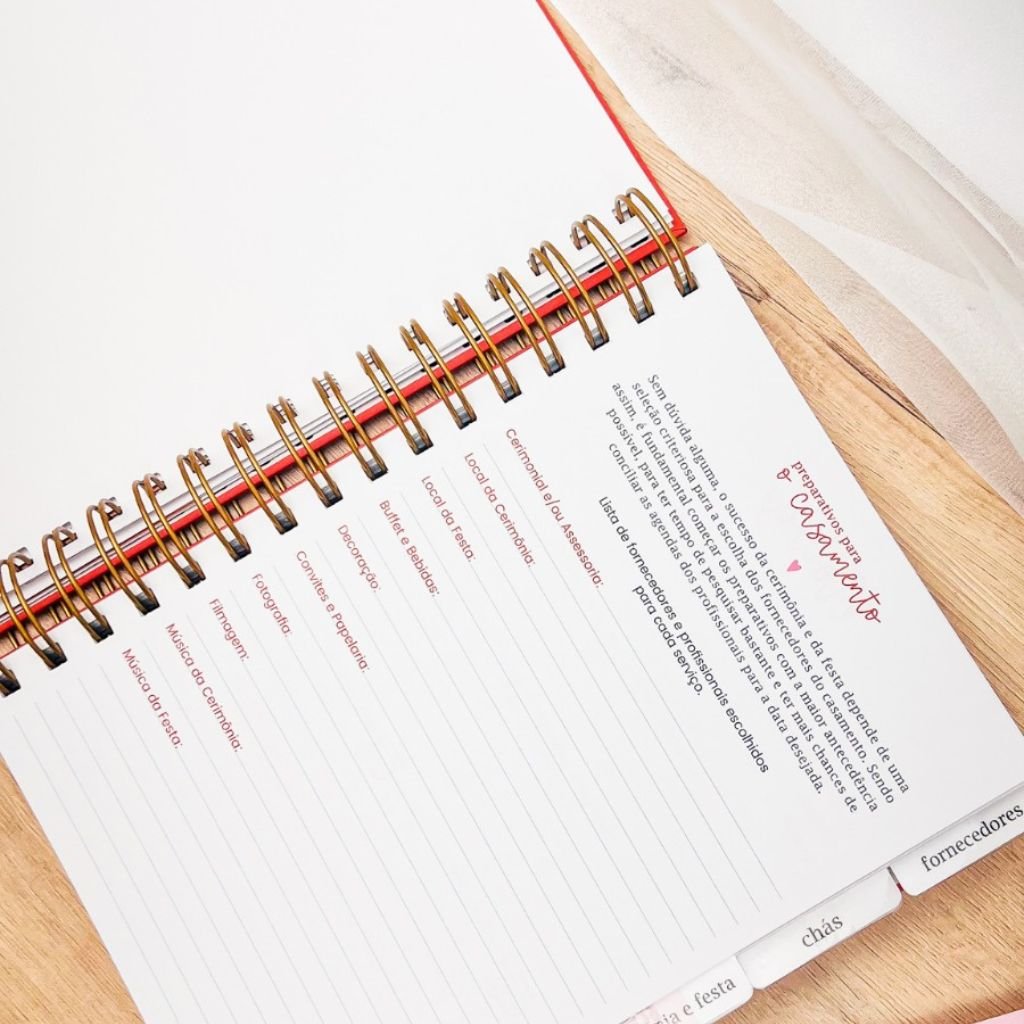 preparativos para
o casamento
Sem dúvida alguma, o sucesso da cerimônia e da festa depende de uma
seleção criteriosa para a escolha dos fornecedores do casamento. Sendo
assim, é fundamental começar os preparativos com a maior antecedência
possível, para ter tempo de pesquisar bastante e ter mais chances de
conciliar as agendas dos profissionais para a data desejada.
Lista de fornecedores e profissionais escolhidos
para cada serviço.
Cerimonial e/ou Assessoria:
Local da Cerimônia:
Local da Festa:
Buffet e Bebidas:
Decoração:
Convites e Papelaria:
Fotografia:
Filmagem:
Música da Cerimônia:
Música da Festa:
fornecedores
chás
e festa